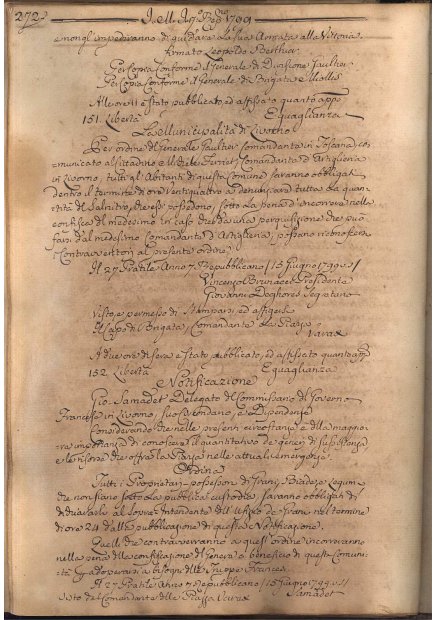 272.
e non gl'impediranno di guidare la sua Armata alla Vittoria
firmato Leopoldo Berthier
Per Copia conforme il Generale di Divisione Gaultier
Per Copia conforme il Generale di Brigata e Miollis
Alle ore 11 è stato pubblicato, ed affissato quanto appo
151. Libertà Eguaglianza
La Municipalità di Livorno
Per ordine del Generale Gaultier Comandante in Toscana, co-
municato al Cittadino Comandante d'Artiglieria
in Livorno, tutti gl'Abitanti di questa Comune saranno obbligati
dentro il termine di ore ventiquattro a denunziare tutta la quan-
tità del Salnitro, che essi possedono, sotto la pena d'incorrere nella
confisca del medesimo in caso che da una perquisizione che può
farsi dal medesimo Comandante d'Artiglieria, possano
Contravventori al presente ordine.
Il 27 Pratile Anno 7. Repubblicano / 15 Giugno 1799. s/
Vincenzo Presidente
Giovanni Segretario
Visto, e permesso di Stamparsi, ed affiggersi
Il Capo di Brigata, Comandante la Piazza
A due ore di sera è stato pubblicato, ed affissato quanto appo
152. Libertà Eguaglianza
Notificazione
Gio. Samadet Delegato del Commissario di Governo
Francese in Livorno, suo Circondario, e Dipendenze
Considerando che nelle presenti circostanze è della maggio-
re importanza di conoscere il quantitativo de' generi di sussistenza
e le risorse che offre la Piazza nelle attuali emergenze.
Ordina
Tutti i Proprietari, e possessori di Grani, Biade, e Legumi
che non siano sotto la pubblica custodia, saranno obbligati di
dichiararlo al Sopra-Intendente dell'Ufizio de' Grani nel termine
di ore 24 dalla pubblicazione di questa Notificazione.
Quelli che contravverranno a quest'ordine incorreranno
nella pena della confiscazione del Genere a benefizio di questa Comuni-
tà, ed a' bisogni delle Truppe Francesi.
Il 27 Pratile Anno 7 Repubblicano / 15 Giugno 1799. s/
Visto del Comandante della Piazza Samadet